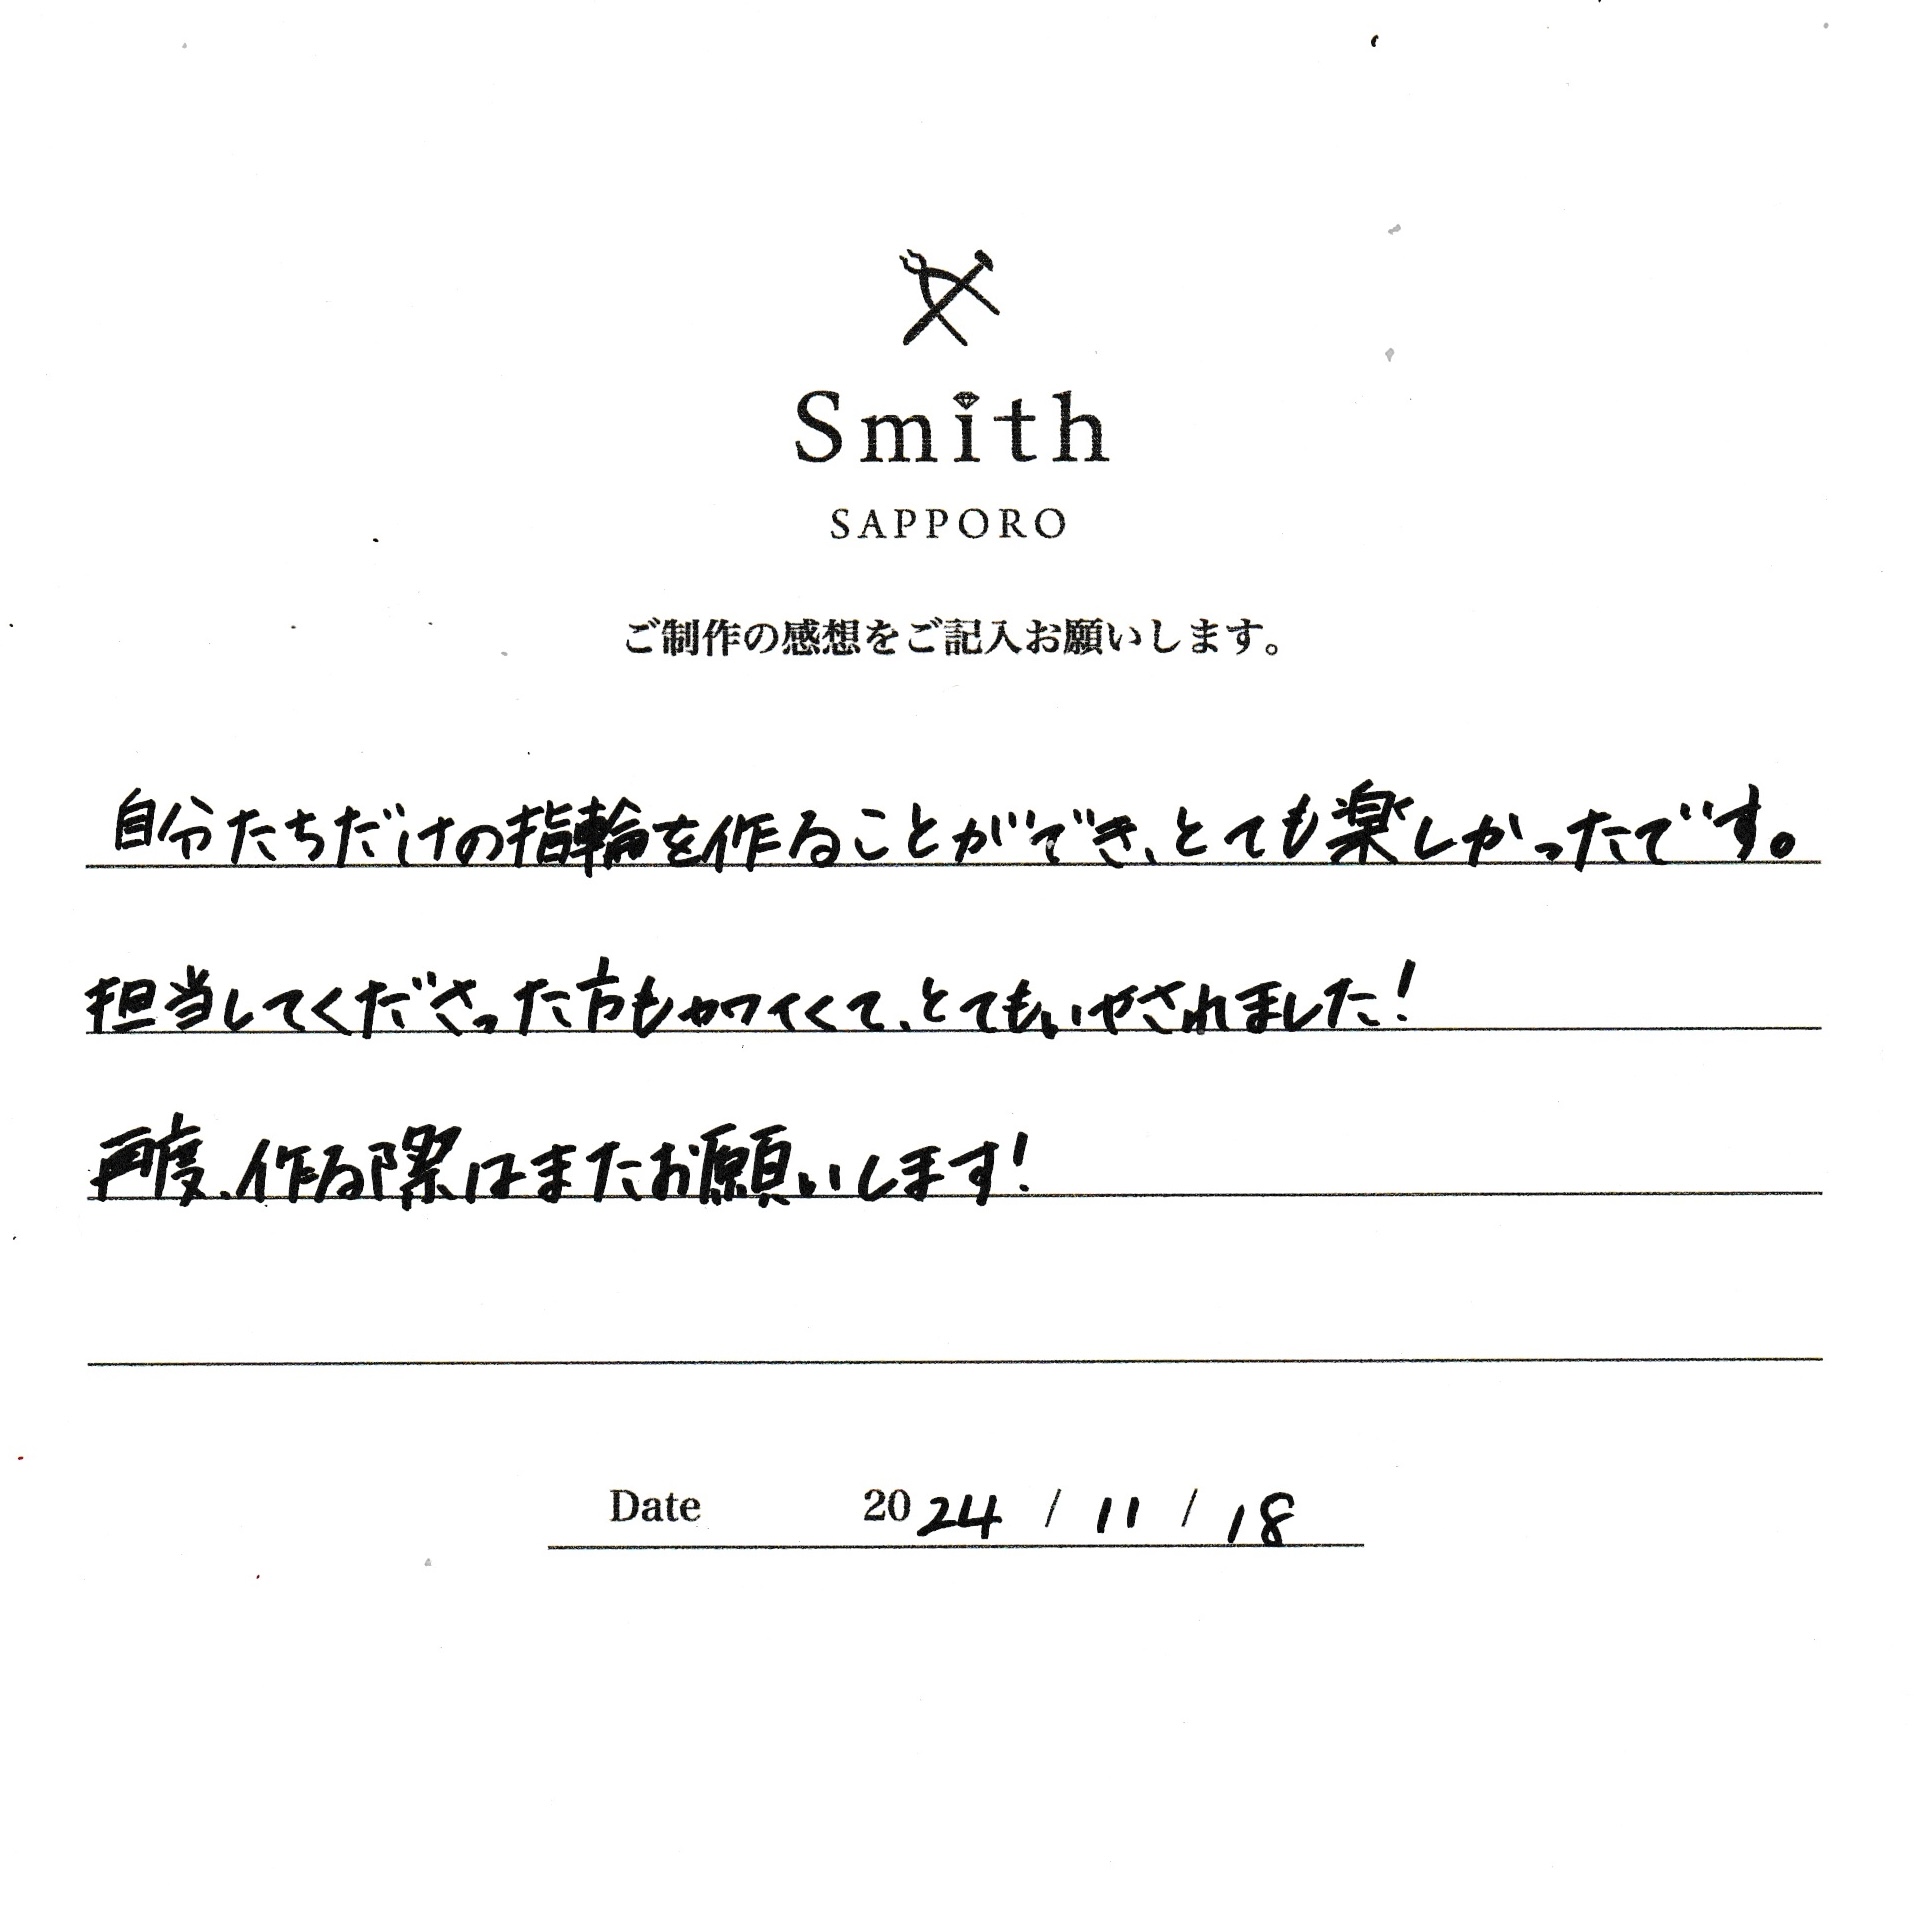 Smith
SAPPORO
ご制作の感想をご記入お願いします。
自分たちだけの指輪を作ることができ、とても楽しかったです。
担当してくださった方もカワイくて、とてもいやされました!
再度、作る際はまたお願いします!
Date 2024 / 11 / 18